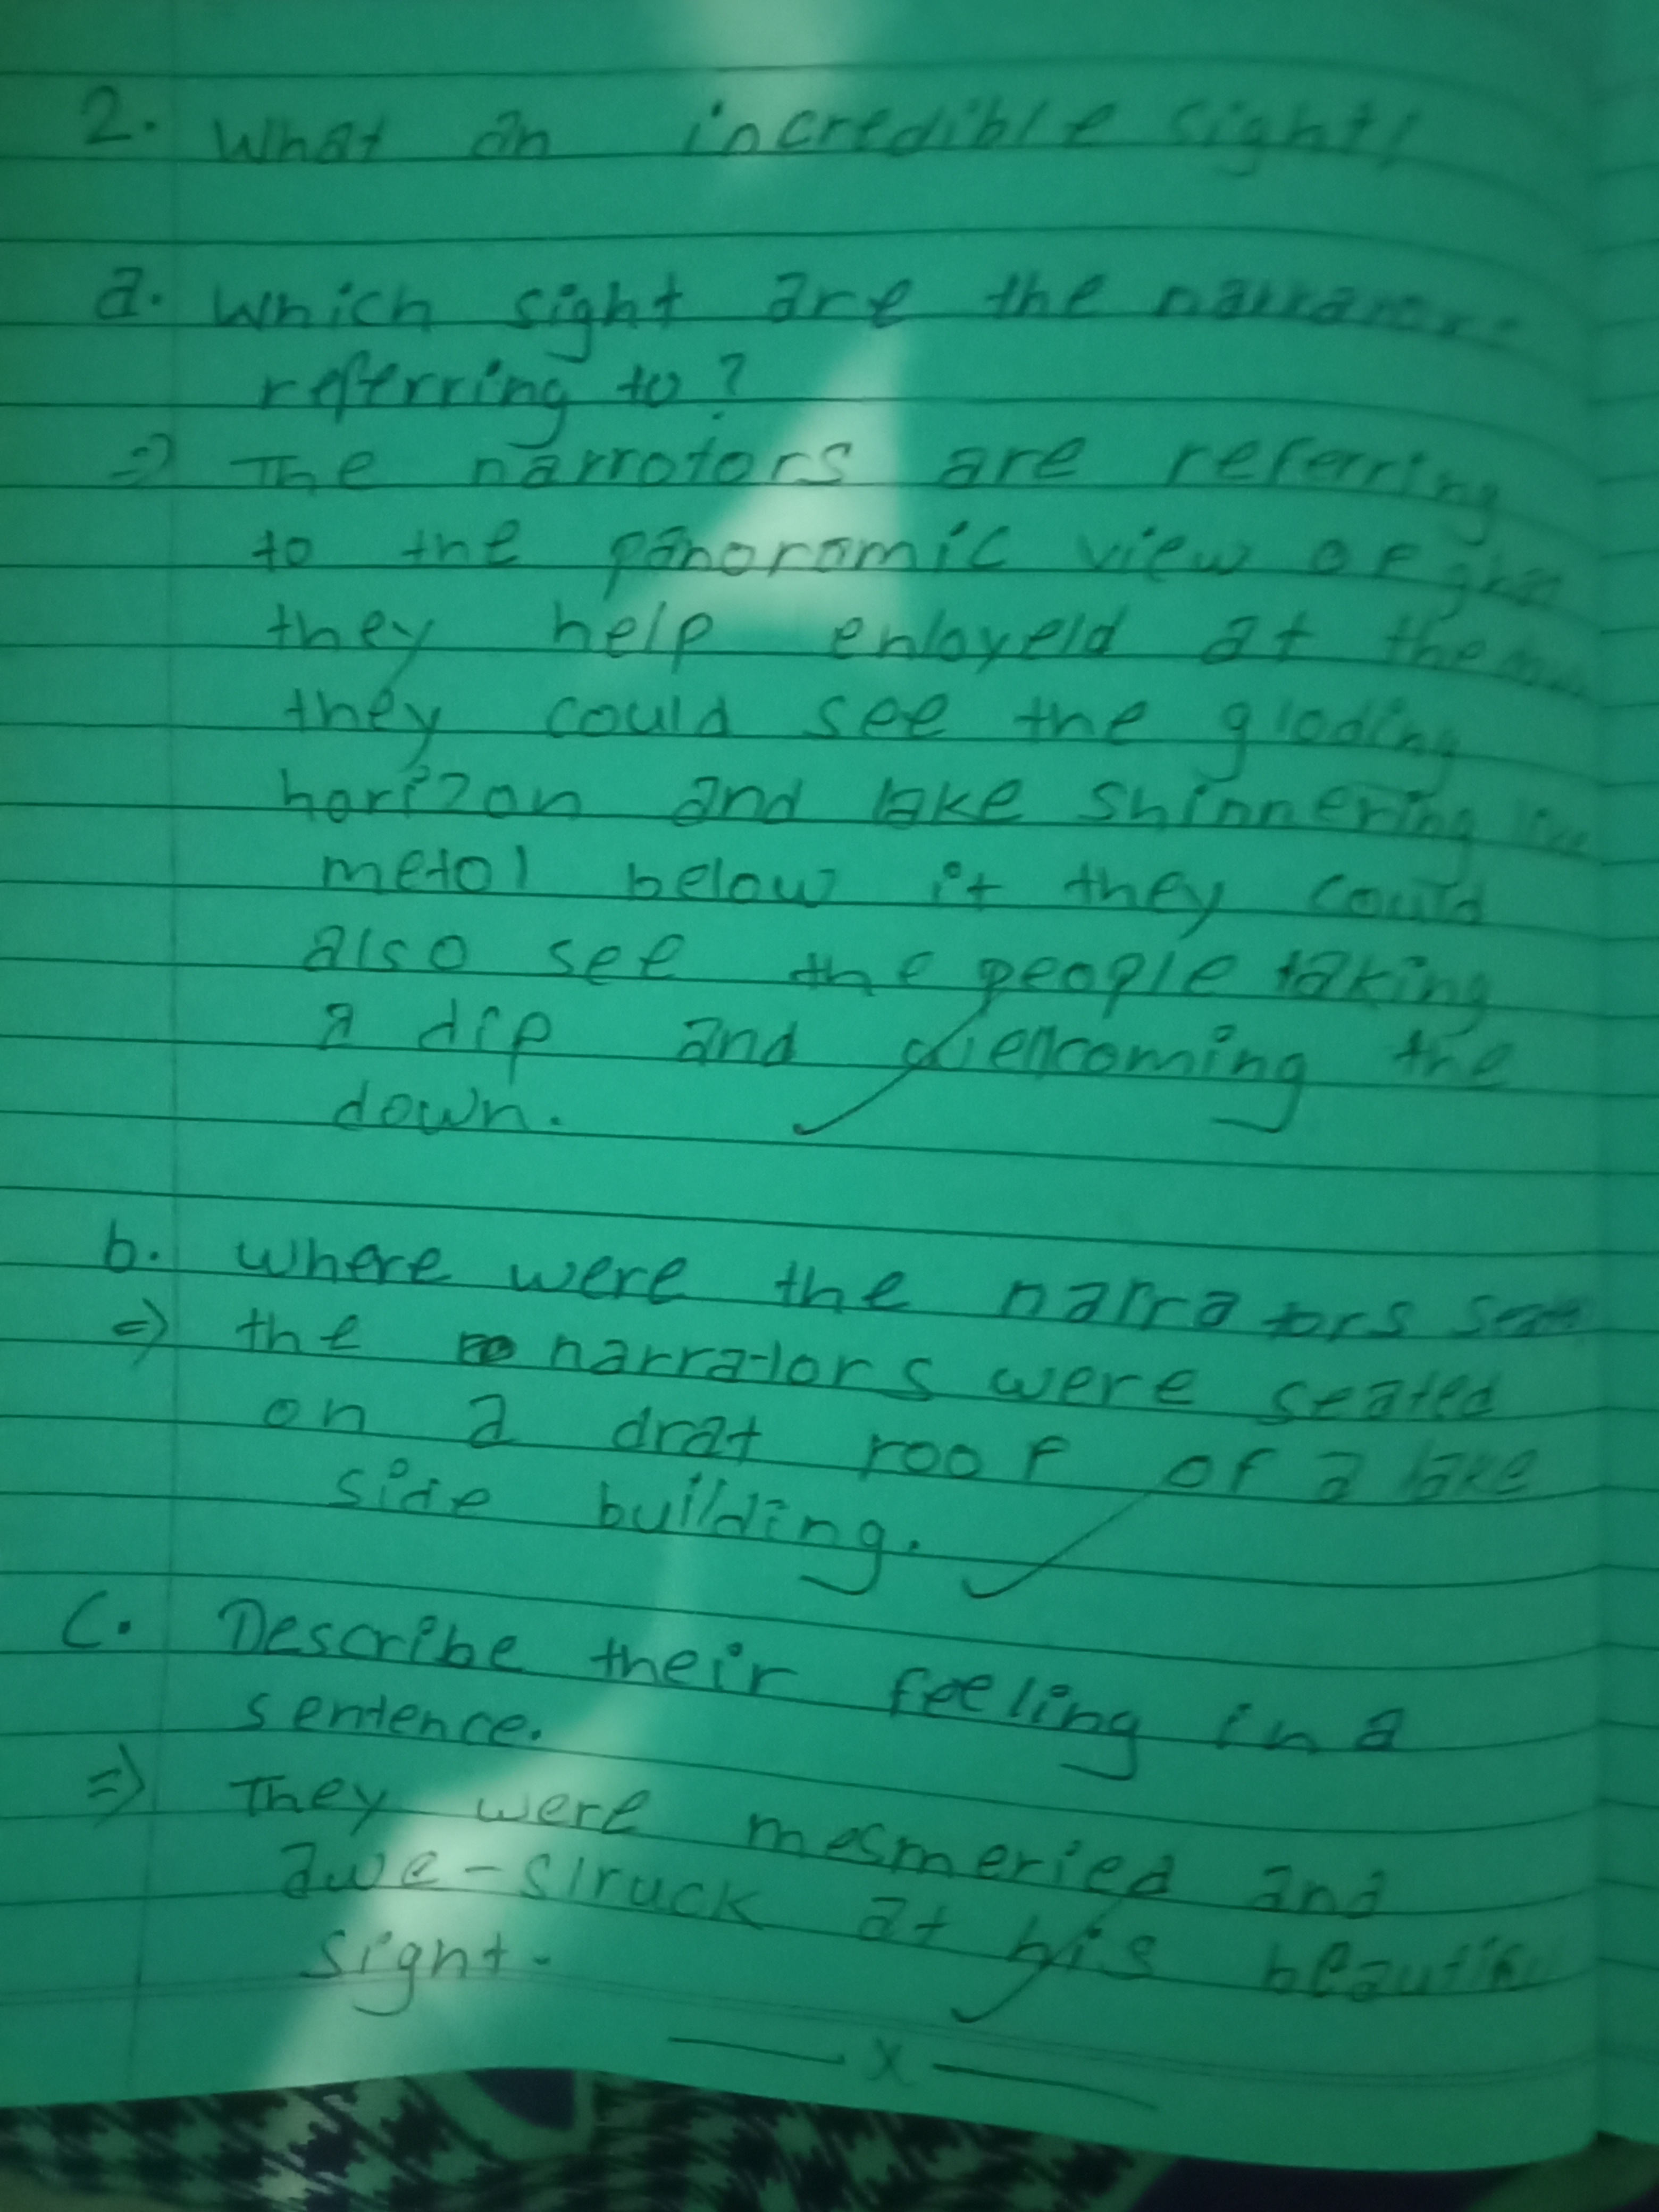 2. What an incredible sight!
a. Which sight are the
referring to?
=> The narrotors are referring
to the panoromic view of
they help enloyeld at the
they could see the gloding
horizon and lake shinnering
metol below it they could
also see the people taking
a dip and wellcoming the
down.
b. where were the narrators
=> the narrators were seated
on a drat roof of a lake
side building.
C. Describe their feeling in a
sentence.
=> They were mesmeried and
awe-struck at his
sight.
—x—